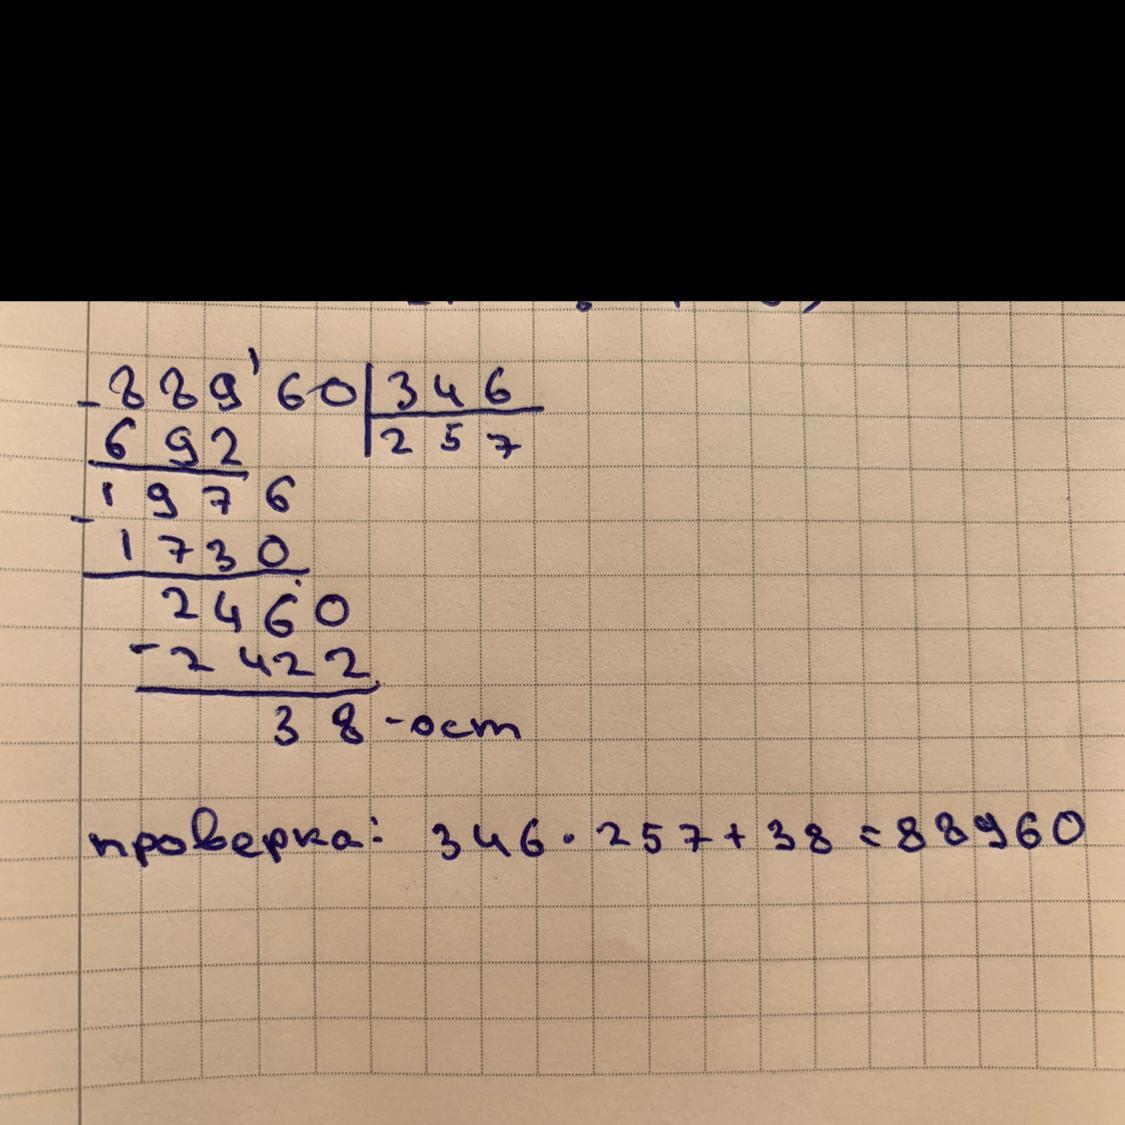 - 889'60 | 346
692 | 257
1976
- 1730
2460
- 2422
38 - ост
проверка: 346 · 257 + 38 = 88960